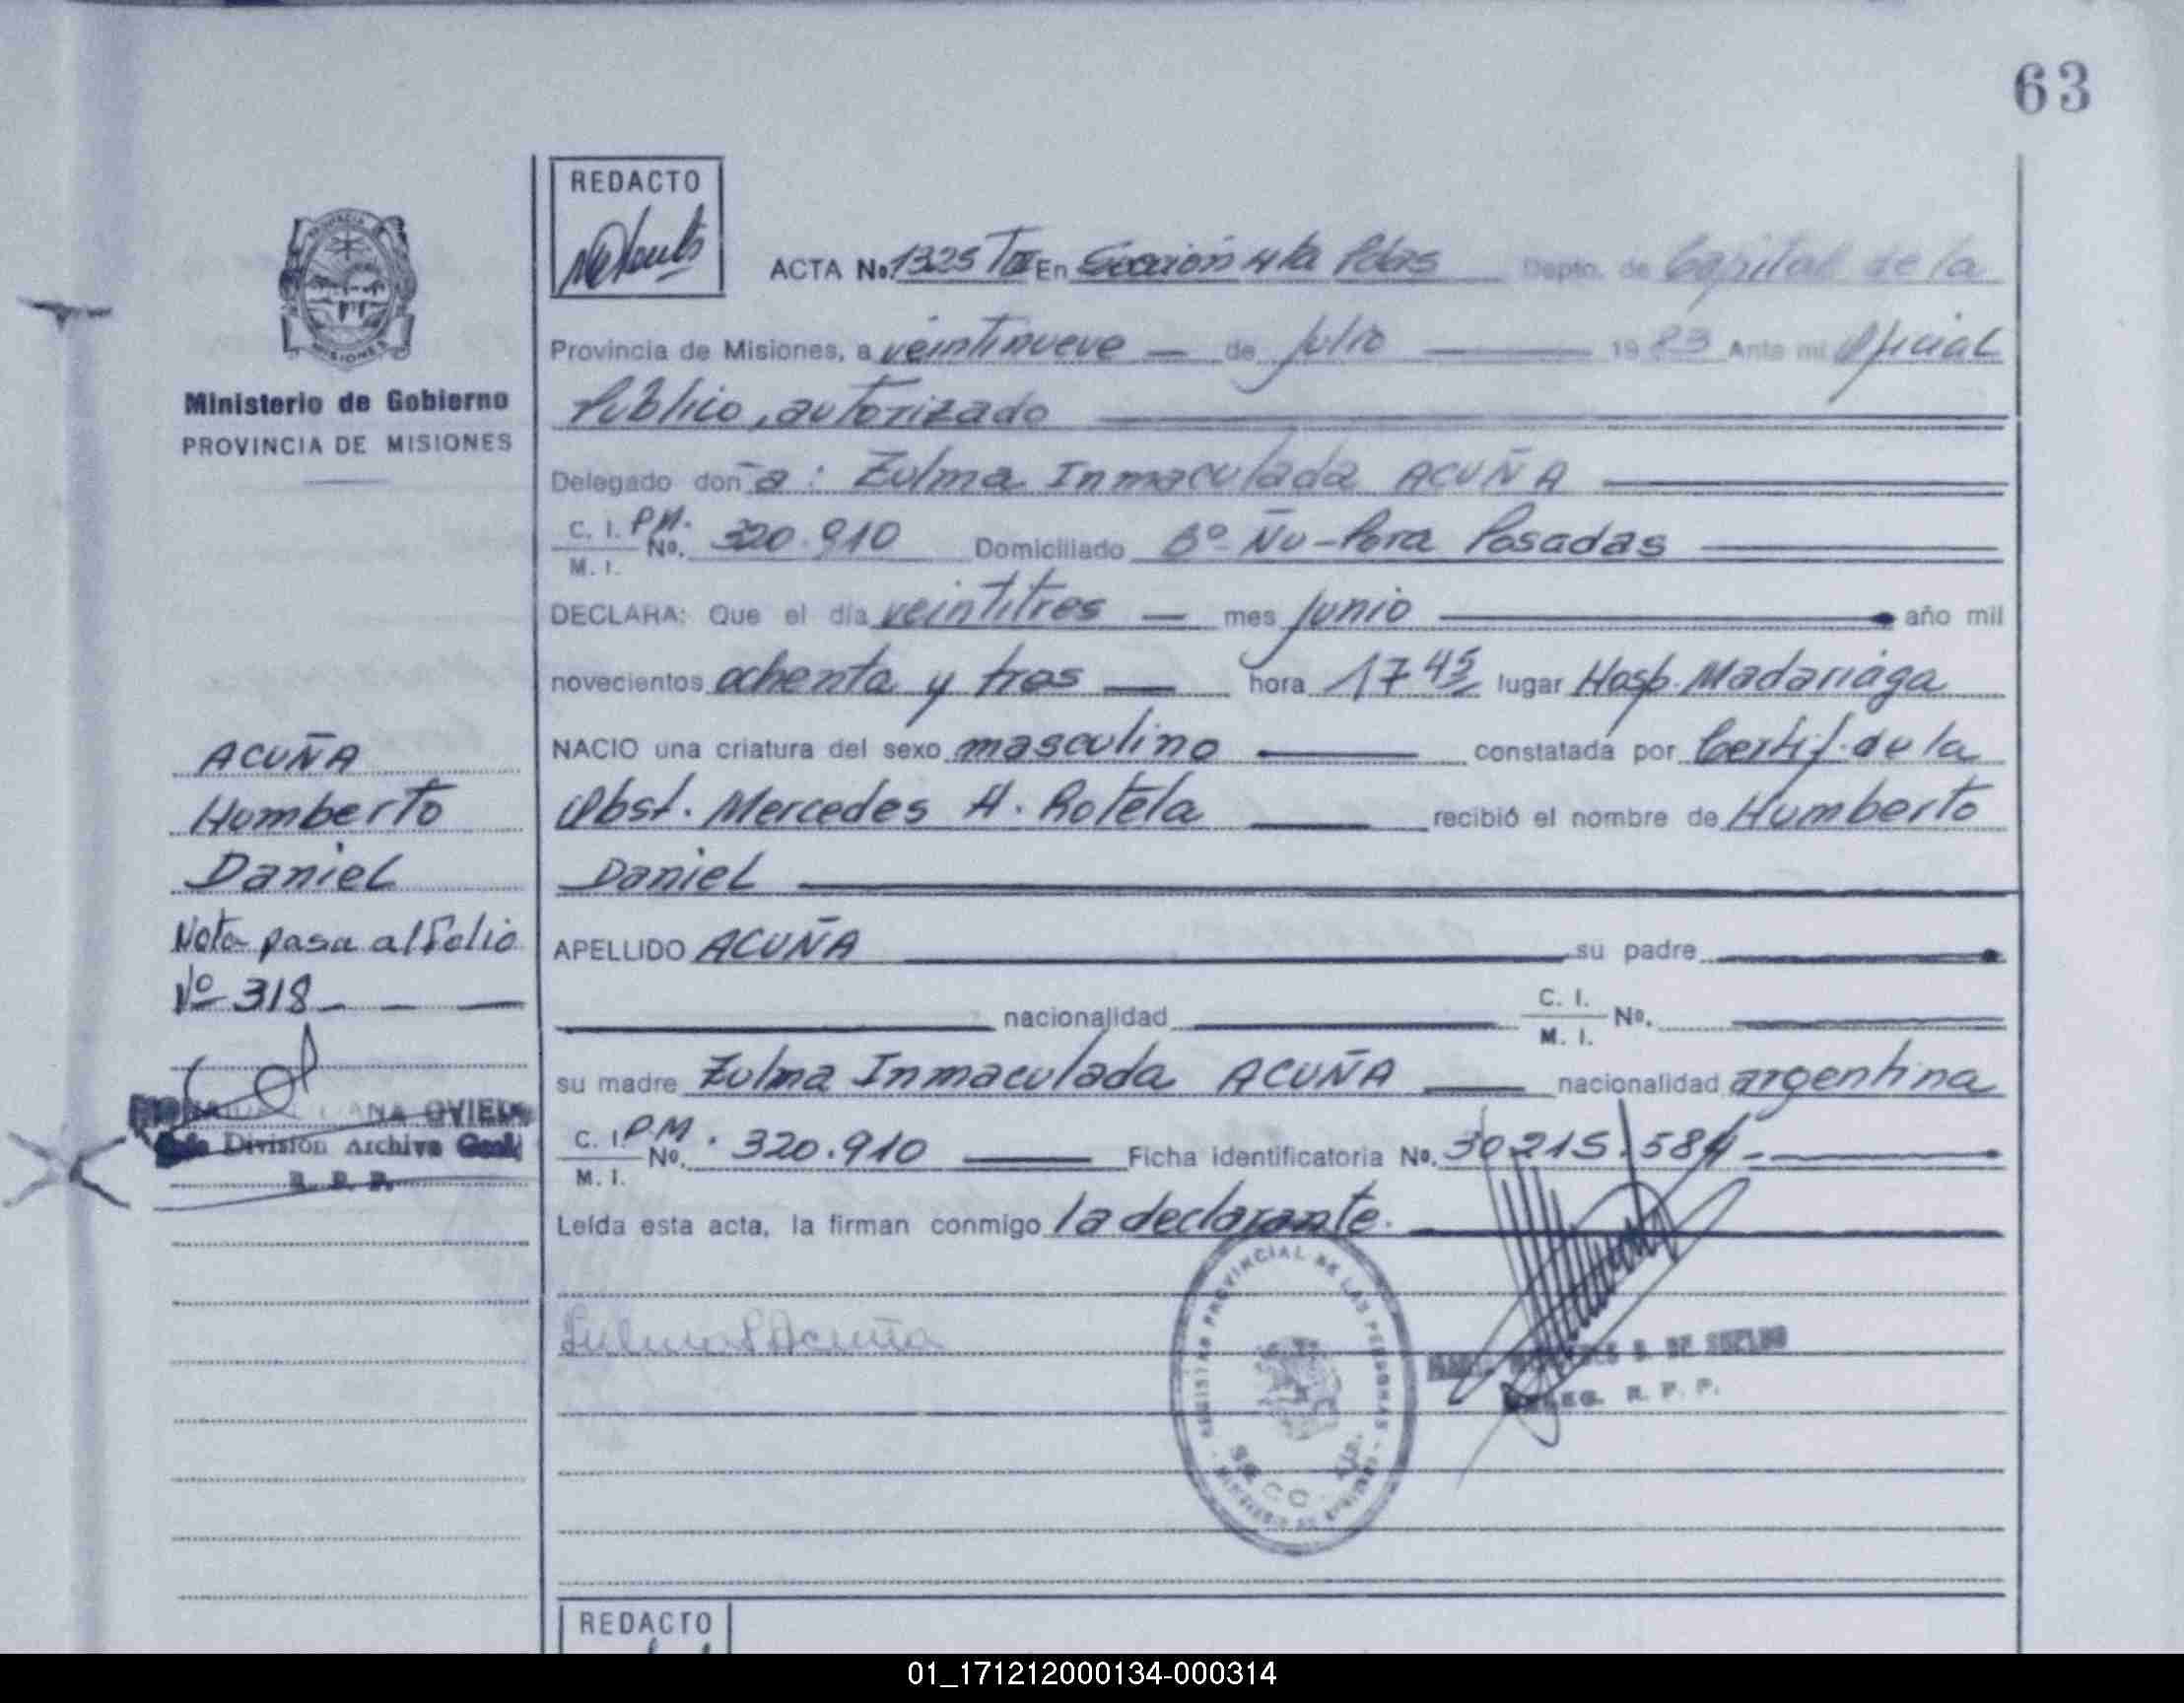 63
REDACTO
ACTA No. 1325 TII En Sección 4ta Pdas Depto. de Capital de la
Provincia de Misiones, a veintinueve de julio 1983 Ante mi Oficial
Público, autorizado
Delegado doña: Zulma Inmaculada ACUÑA
C. I. PM. No. 320.910 Domiciliado Bº Ñu-Pora Posadas
M. I.
DECLARA: Que el día veintitres mes junio año mil
novecientos ochenta y tres hora 17 45 lugar Hosp. Madariaga
NACIO una criatura del sexo masculino constatada por Certif. de la
Obst. Mercedes H. Rotela recibió el nombre de Humberto
Daniel
APELLIDO ACUÑA su padre
nacionalidad C. I. No.
M. I.
su madre Zulma Inmaculada ACUÑA nacionalidad argentina
C. I. PM. No. 320.910 Ficha identificatoria No. 30.215.584
M. I.
Leída esta acta, la firman conmigo la declarante.
Ministerio de Gobierno
PROVINCIA DE MISIONES
ACUÑA
Humberto
Daniel
Nota pasa al folio
Nº 318
OVIEDO
División Archivo Gral
R. P. P.
Acuña
REGISTRO PROVINCIAL DE LAS PERSONAS
DE SUELDO
DELEG. R. P. P.
REDACTO
01_171212000134-000314